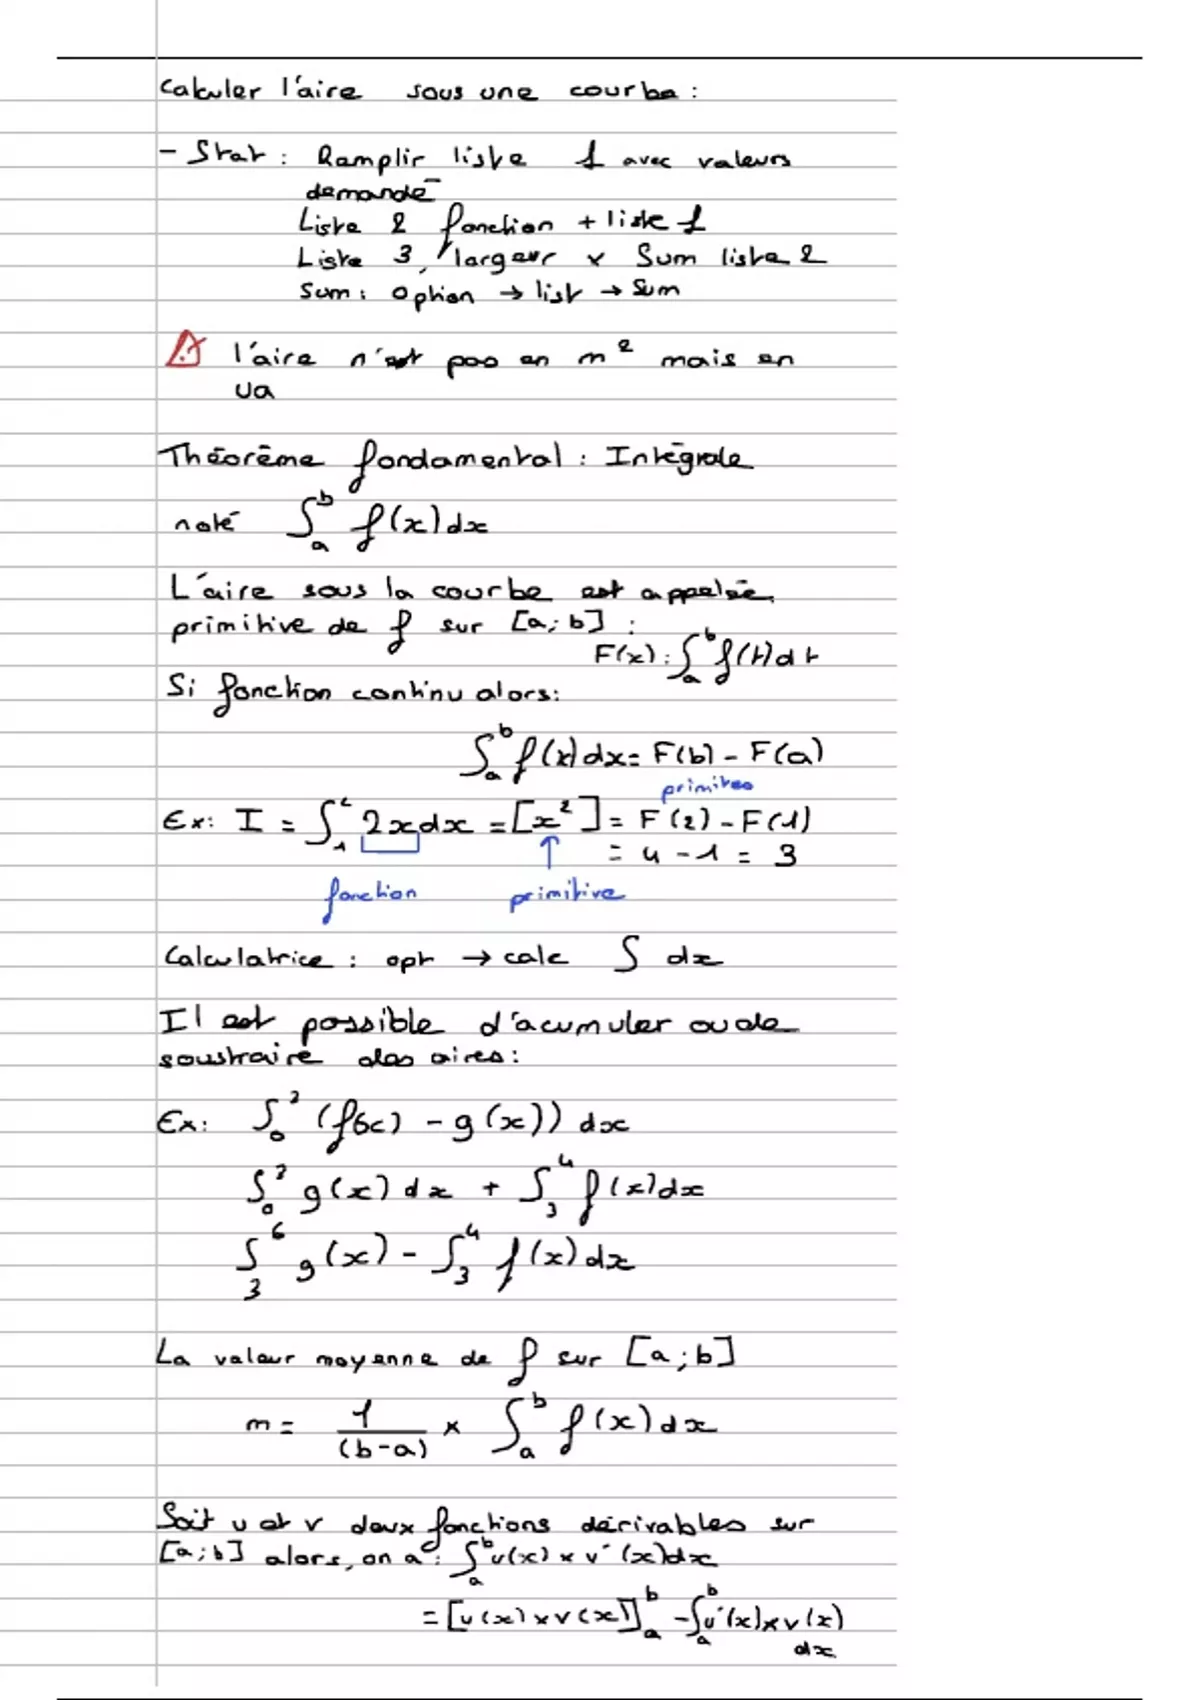 Calculer l'aire sous une courbe :
- Stat : Remplir liste 1 avec valeurs
demandé
Liste 2 fonction + liste 1
Liste 3, largeur x Sum liste 2
Sum : Option → list → Sum
⚠ l'aire n'est pas en m² mais en
ua
Théorème fondamental : Intégrale
noté ∫_a^b f(x)dx
L'aire sous la courbe est appelée
primitive de f sur [a;b] :
F(x) : ∫_a^b f(t)dt
Si fonction continu alors :
∫_a^b f(x)dx = F(b) - F(a)
primites
Ex : I = ∫_1^2 2xdx = [x²] = F(2) - F(1)
= 4 - 1 = 3
fonction primitive
Calculatrice : opt → calc ∫ dx
Il est possible d'acumuler ou de
soustraire des aires :
Ex : ∫_0^2 (f(x) - g(x)) dx
∫_0^2 g(x) dx + ∫_3^4 f(x)dx
∫_3^6 g(x) - ∫_3^4 f(x)dx
La valeur moyenne de f sur [a;b]
m = 1/(b-a) x ∫_a^b f(x)dx
Soit u et v deux fonctions dérivables sur
[a;b] alors, on a : ∫_a^b u(x) x v'(x)dx
= [u(x) x v(x)]_a^b - ∫_a^b u'(x) x v(x)
dx